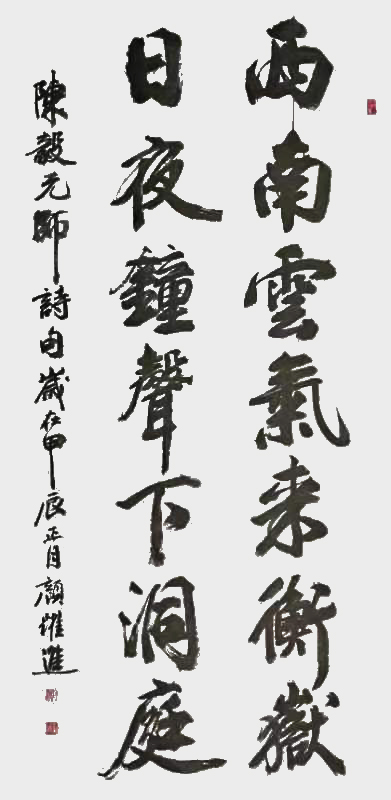 西南雲氣来衡嶽
日夜鐘聲下洞庭
陳毅元帥詩句歲在甲辰正月顏